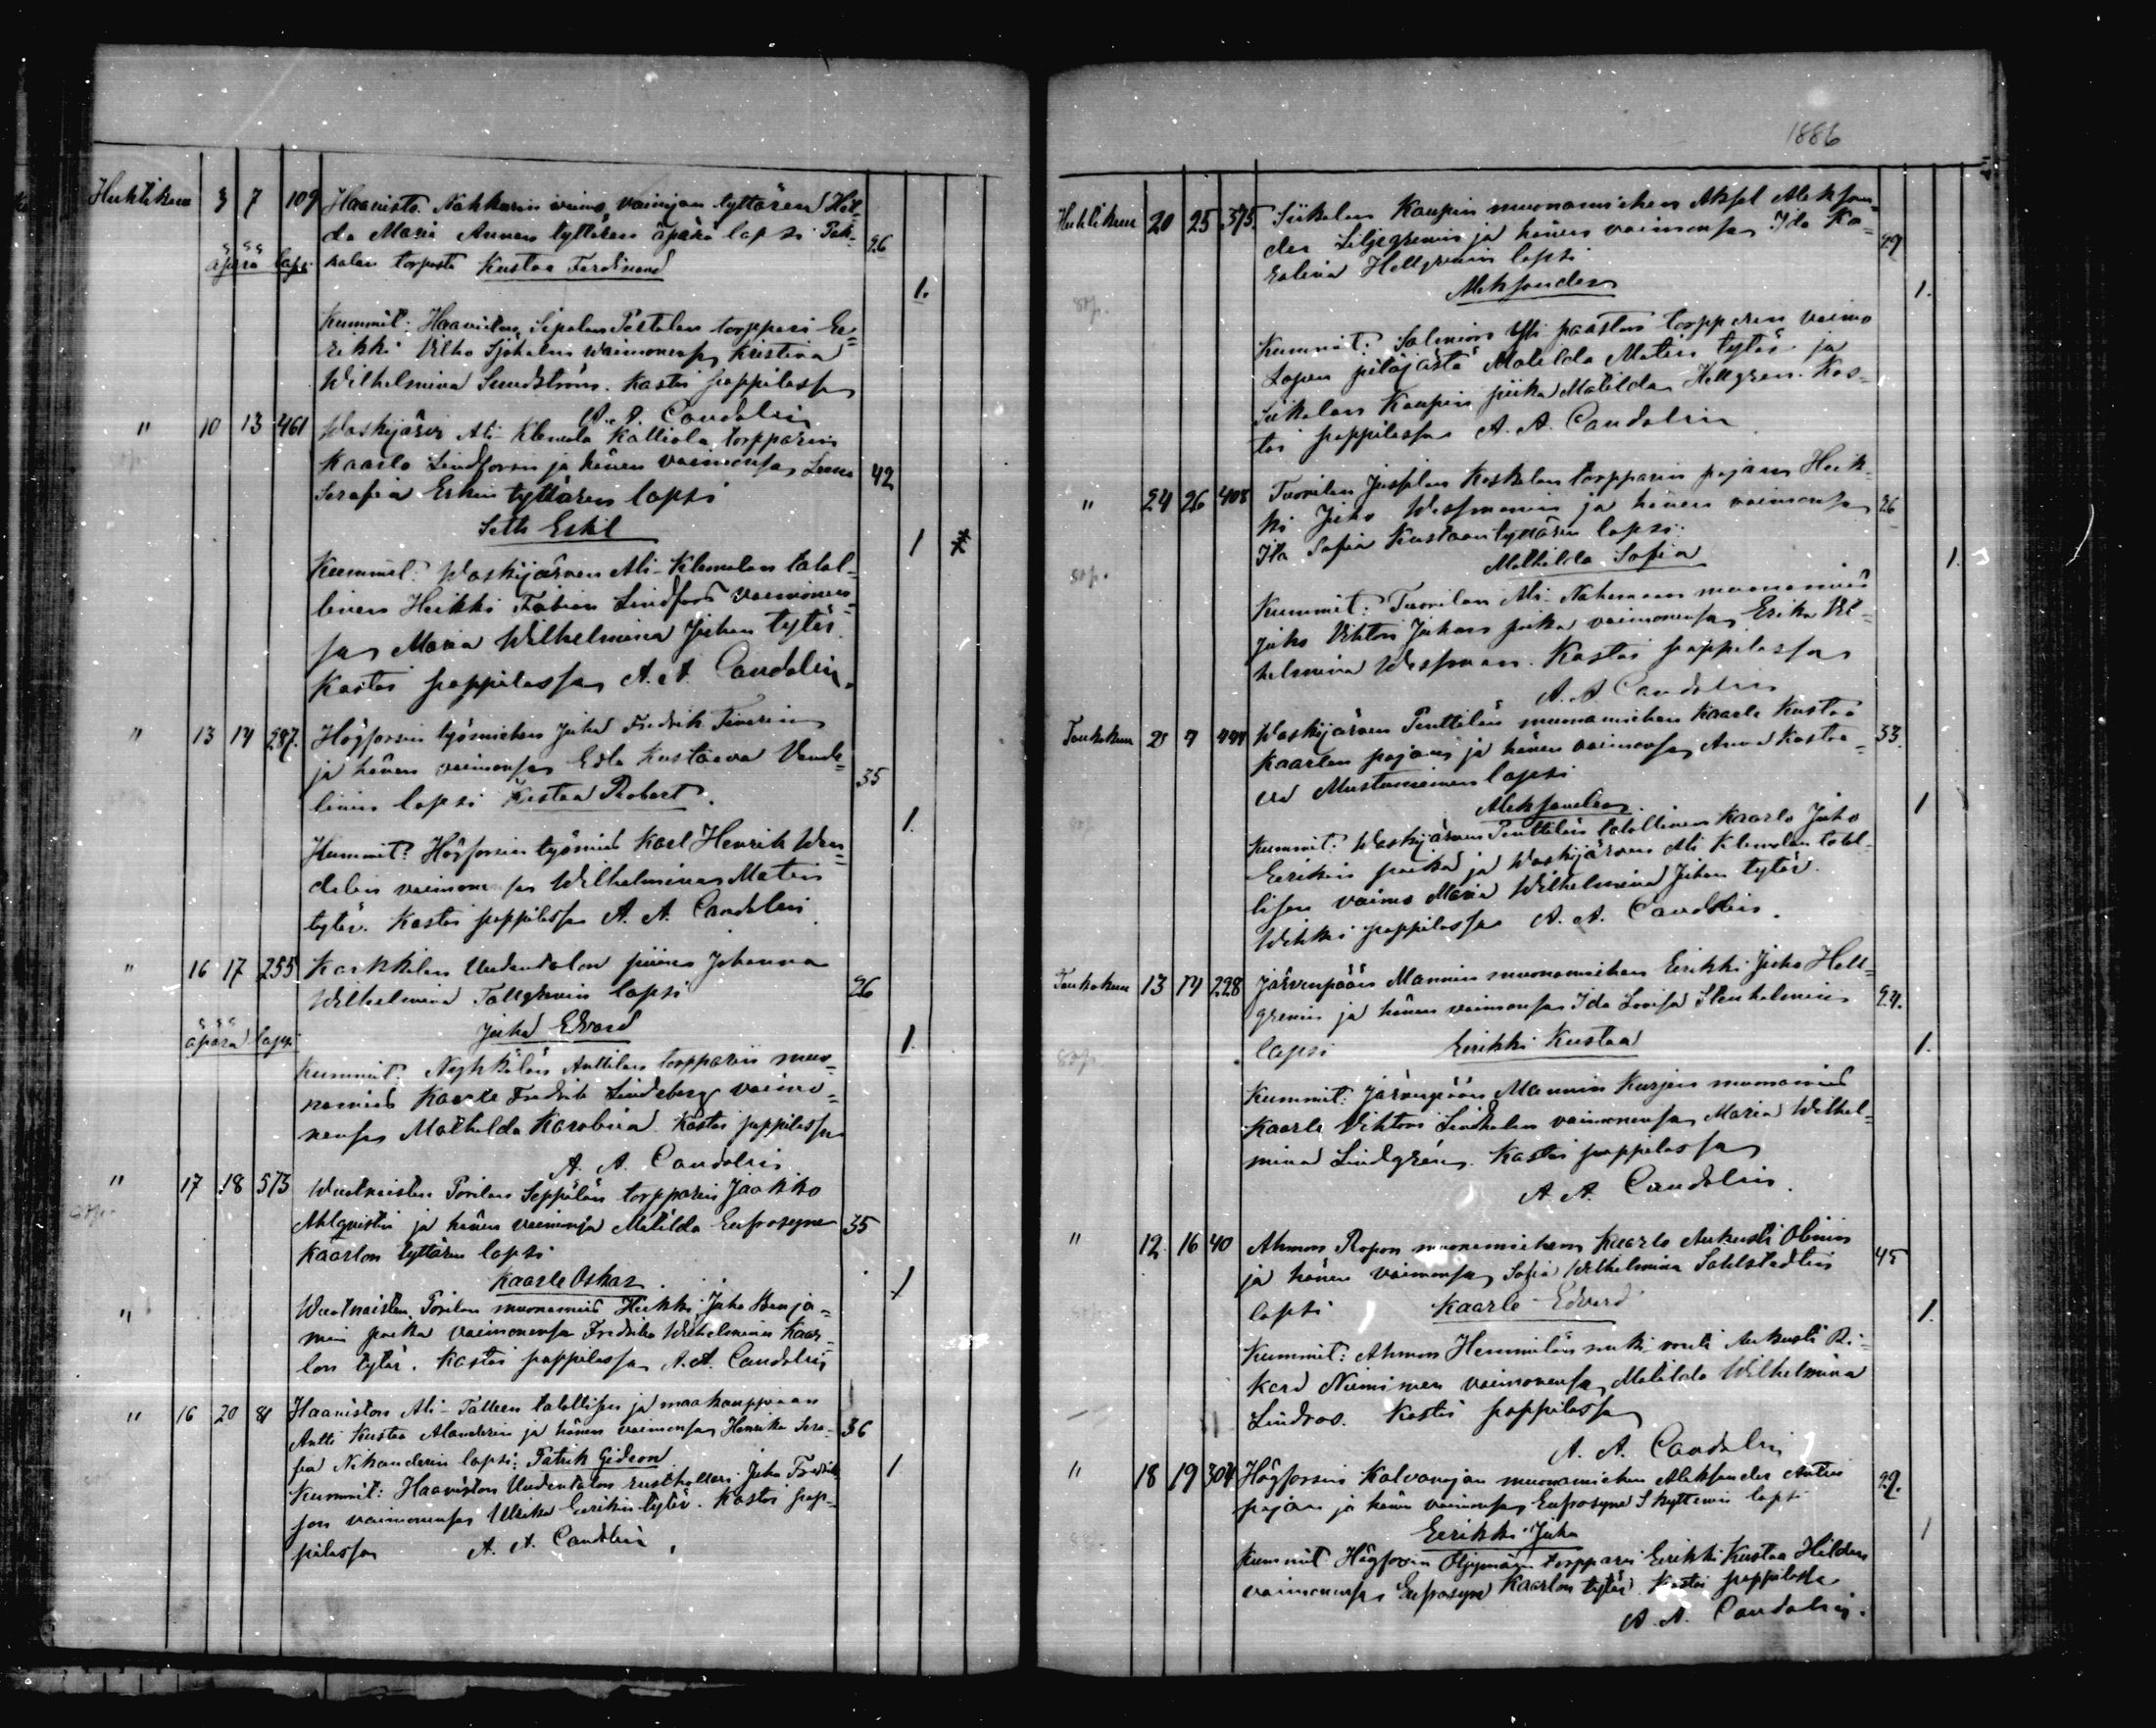 Huhtikuu 3 7 109 Haaviston Nahkurin vaimo, vainajan tyttären Hil-
da Maria Annan tyttären äpärä lapsi 26
äpärä lapsi torpasta Kustaa Ferdinand
1.
Kummit: Haaviston Sepalan torppari Ee-
rikki Vilho Sjöholm vaimonensa Kristina
Wilhelmina Sundström. Kasti pappilassa
A. A. Candolin
" 10 13 461 Waskijärvi Ali-Klemola Kalliola torpparin
Kaarlo Lindforsin ja hänen vaimonsa 42
Serafia Eskin tyttären lapsi
Seth Eskil
1
Kummit: Waskijärven Ali-Klemolan talol-
linen Heikki Fabian Lindfors vaimonen-
sa Maria Wilhelmina Juhan tytär.
Kastoi pappilassa A. A. Candolin.
" 13 14 287. Högforsin työmiehen Juho Fredrik
ja hänen vaimonsa Edla Kustaava Vende-
linin lapsi Kustaa Robert. 35
1.
Kummit: Högforsin työmies Karl Henrik Wen-
delin vaimonensa Wilhelmina Matin
tytär. Kastoi pappilassa A. A. Candolin
" 16 17 255 Karkkilan Uudentalon piian Johanna
Wilhelmina Tallgrenin lapsi 26
äpärä lapsi Juho Edvard
1.
Kummit: Nyhkälän Anttilan torpparin muo-
namies Kaarle Fredrik Lindeberg vaimo-
nensa Mathilda Karolina. Kastoi pappilassa
A. A. Candolin
" 17 18 573 Wuotnaisten Porilan Seppälän torpparin Jaakko
Ahlqvistin ja hänen vaimonsa Matilda Eufrosyne 35
Kaarlon tyttären lapsi
Kaarle Oskar. 1
" Wuotnaisten Porilan muonamies Heikki Juho Benja-
min poika vaimonensa Fredrika Wilhelmina Kaar-
lon tytär. Kastoi pappilassa A. A. Candolin
" 16 20 81 Haaviston Ali-Tallen talollisen ja maakauppiaan
Antti Kustaa Alanderin ja hänen vaimonsa Henrika Sera- 36
fia Nikanderin lapsi: Patrik Gideon
1
Kummit: Haaviston Uudentalon rusthollari Juho Fredrik-
son vaimonensa Ulrika Eerikin tytär. Kastoi pap-
pilassa A. A. Candolin
1886
Huhtikuu 20 25 375 Siikalan Kaupin muonamiehen Aksel Aleksan-
der Liljegrenin ja hänen vaimonsa Ida Ka- 29
rolina Hellgrenin lapsi
Aleksander 1.
Kummit: torpparin vaimo
Lopen pitäjästä Matilda Matin tytär ja
Siikalan Kaupin piika Matilda Hellgren. Kas-
toi pappilassa A. A. Candolin
" 24 26 408 Tuorilan Jussilan Koskelan torpparin pojan Heik-
ki Juho Wesmanin ja hänen vaimonsa 26
Ita Sofia Kustaan tyttären lapsi:
Mathilda Sofia 1.
Kummit: Tuorilan Ali-Nahunan muonamies
Juho Viktor Juhan poika vaimonensa Erika Vil-
helmina Wesman. Kastoi pappilassa
A. A. Candolin
Toukokuu 2 7 444 Waskijärven Penttilän muonamiehen Kaarle Kustaa
Kaarlon pojan ja hänen vaimonsa Anna Kustaa- 33.
va Mustaniemen lapsi
Aleksandra. 1
Kummit: Waskijärven Penttilän talollinen Kaarlo Juho
Eerikin poika ja Waskijärven Ali Klemolan talol-
lisen vaimo Maria Wilhelmina Juhan tytär.
Wihki pappilassa A. A. Candolin.
Toukokuu 13 14 228 Järvenpään Mannin muonamiehen Eerikki Juho Hell-
grenin ja hänen vaimonsa Ida Lovisa Stenholmin 24.
lapsi Eerikki Kustaa 1.
Kummit: Järvenpään Mannin Kurjen muonamies
Kaarle Viktor Lindholm vaimonensa Maria Wilhel-
mina Lindgren. Kastoi pappilassa
A. A. Candolin.
" 12 16 40 Ahmon Ropon muonamiehen Kaarlo Aukusti Olinin
ja hänen vaimonsa Sofia Wilhelmina Sahlstedtin 45
lapsi Kaarle Edvard 1.
Kummit: Ahmon Hemmilän vouti Aukusti Ri-
kard Nieminen vaimonensa Matilda Wilhelmina
Lindroos. Kastoi pappilassa
A. A. Candolin
" 18 19 304 Högforsin Kalvanojan muonamiehen Aleksander Antin
pojan ja hänen vaimonsa Eufrosyne Skyttenin lapsi 29.
Eerikki Juho 1
Kummit Högforsin torppari Eerikki Kustaa Hilden
vaimonensa Eufrosyne Kaarlon tytär. Kastoi pappilassa
A. A. Candolin.